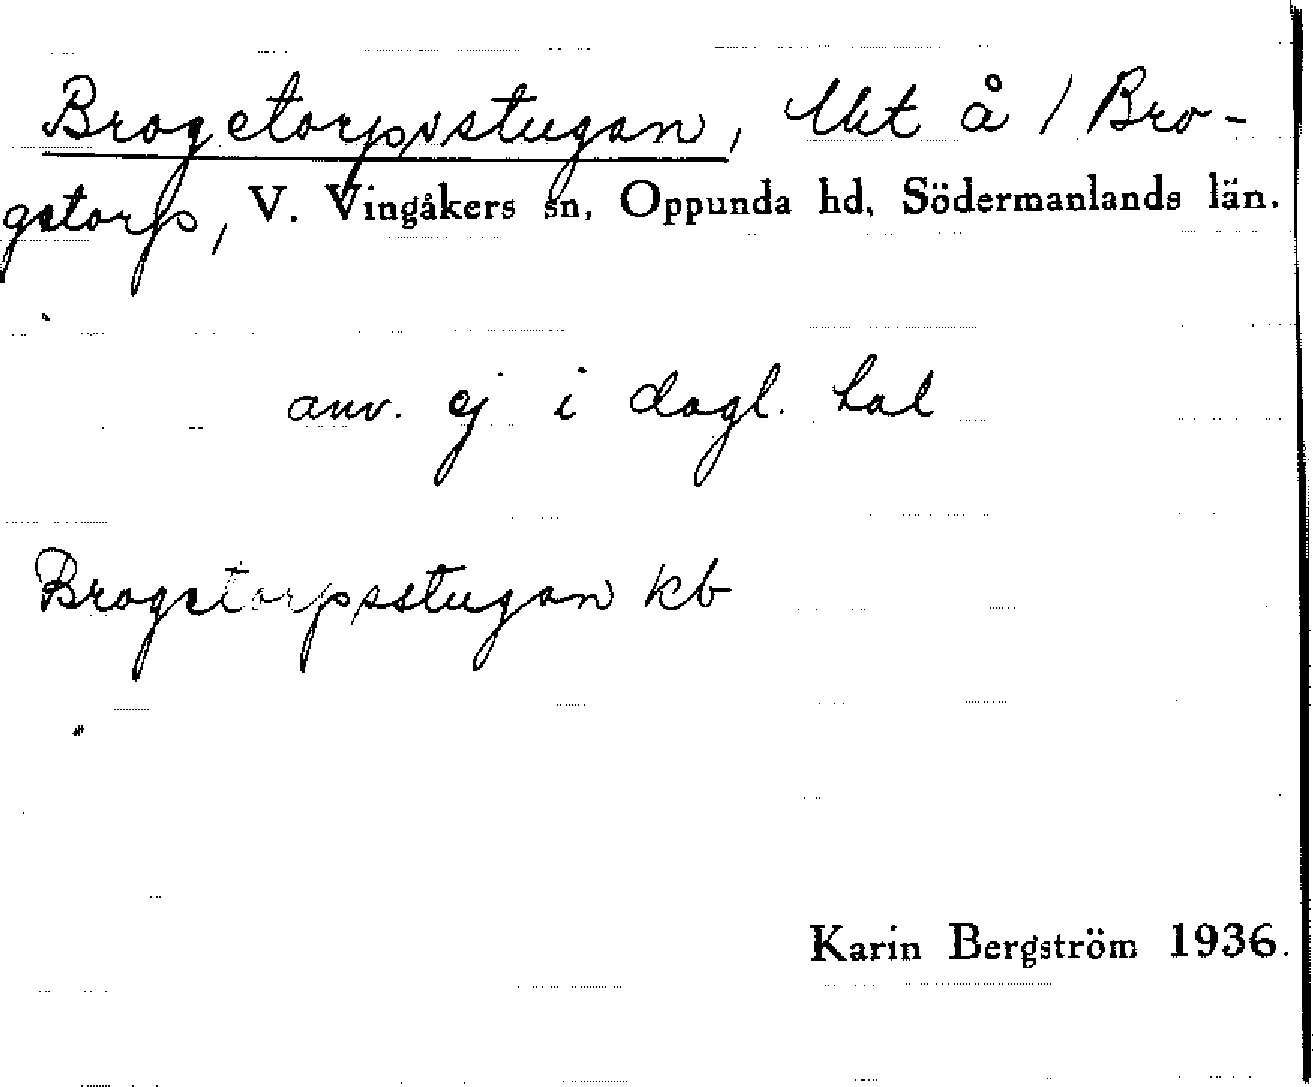 Brogetorpsstugan, lht å / Bro-
getorp, V. Vingåkers sn, Oppunda hd, Södermanlands län.
anv. ej i dagl. tal
Brogetorpsstugan kb
Karin Bergström 1936.